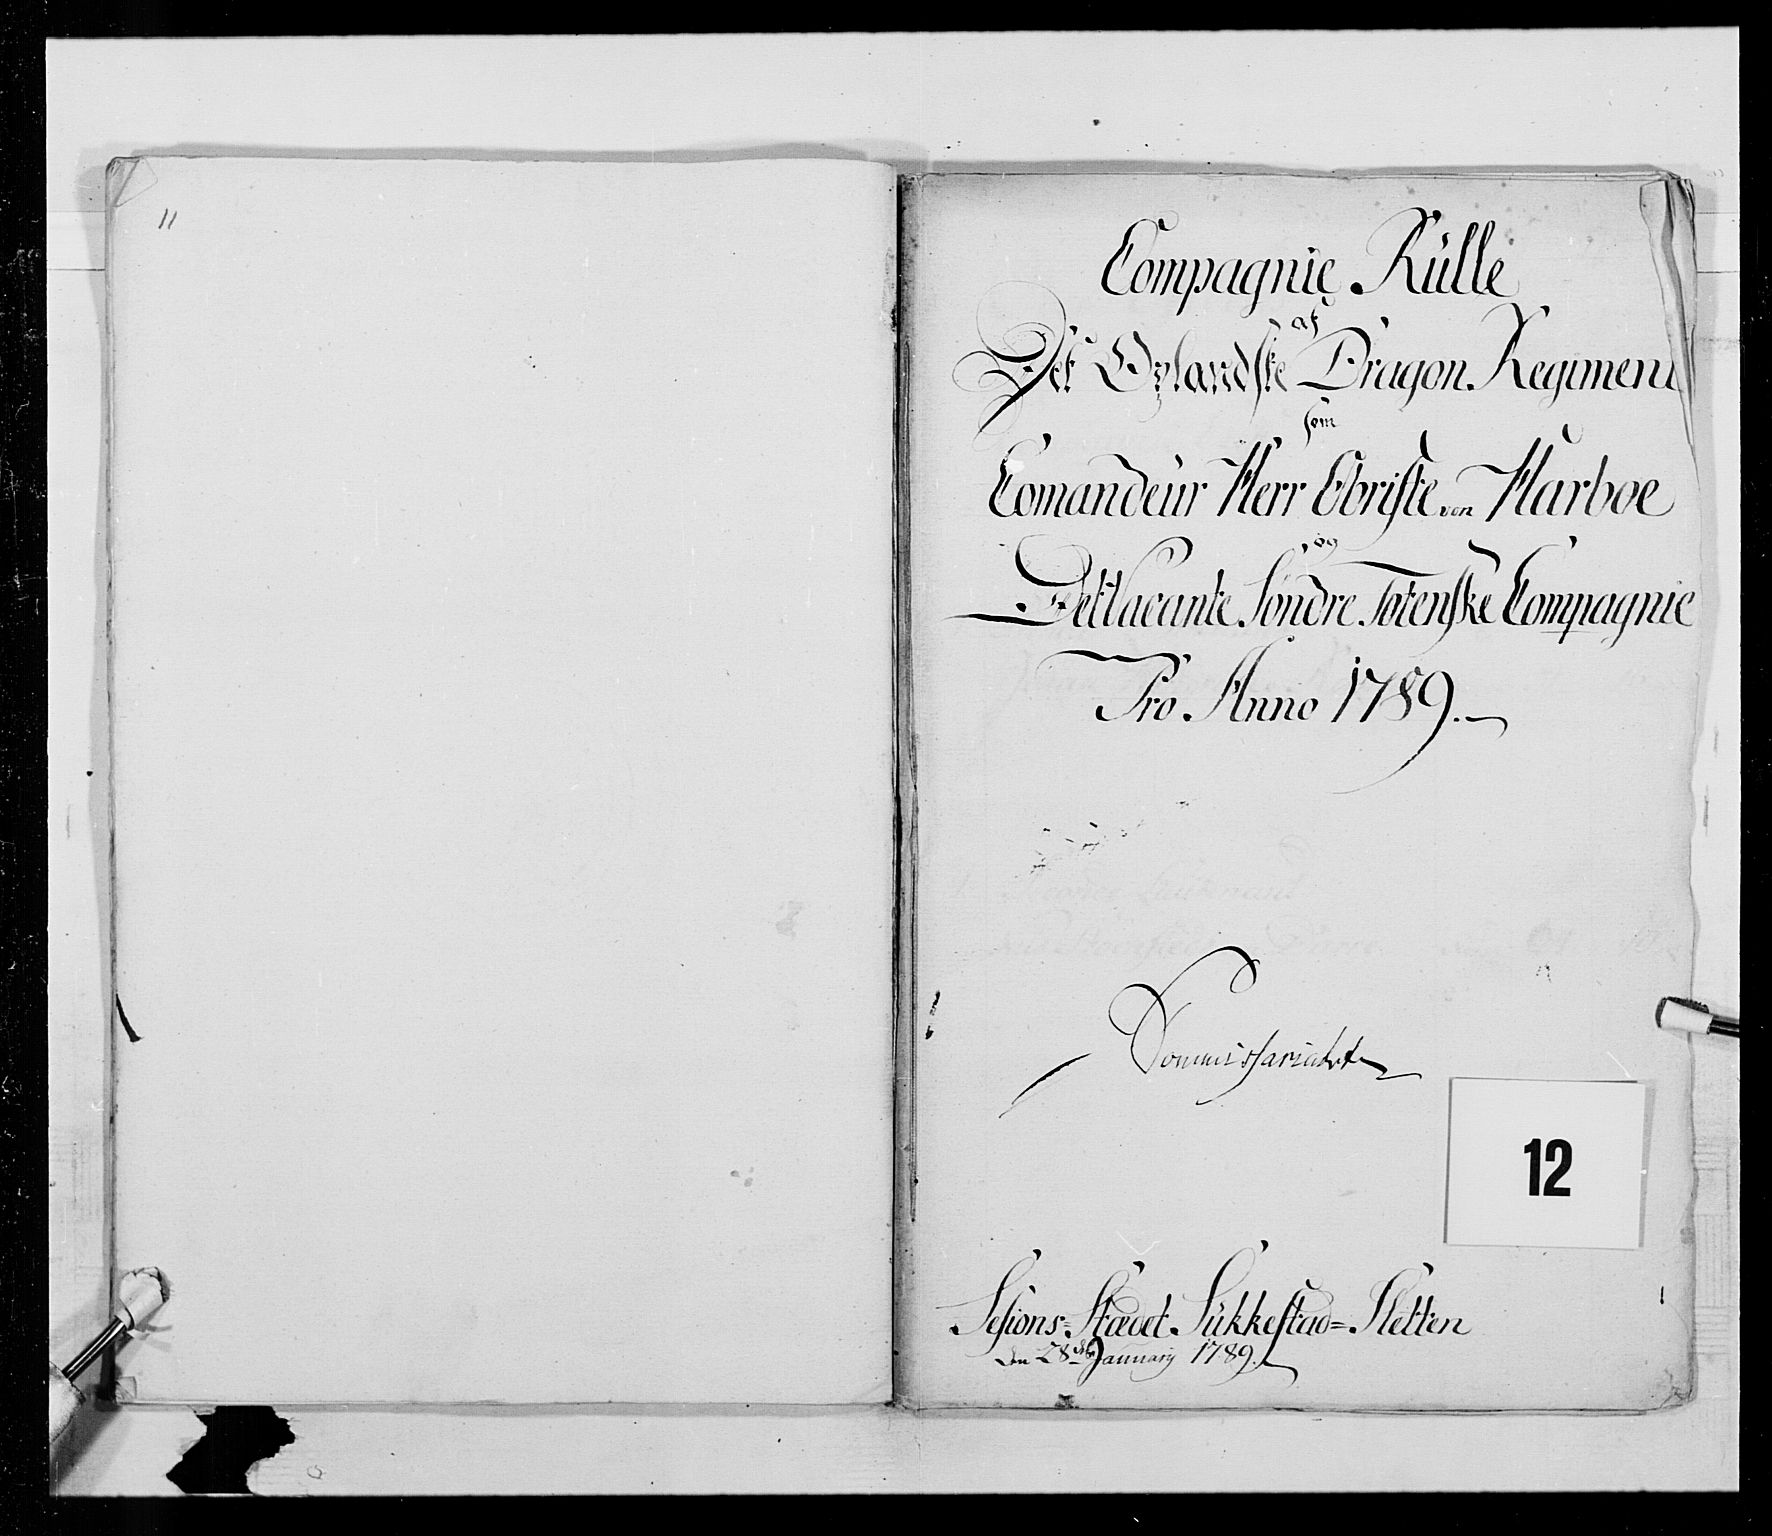 11
Compagnie Rülle
af
Det Oplandske Dragon Regiment
som
Comandeur Herr Obriste von Harboe
og
Det Vacante Söndre Totenske Compagnie
Pro Anno 1789.
Commissariatet
12
Sesions-Stædet Sükkestad=Sletten
den 28de January 1789.